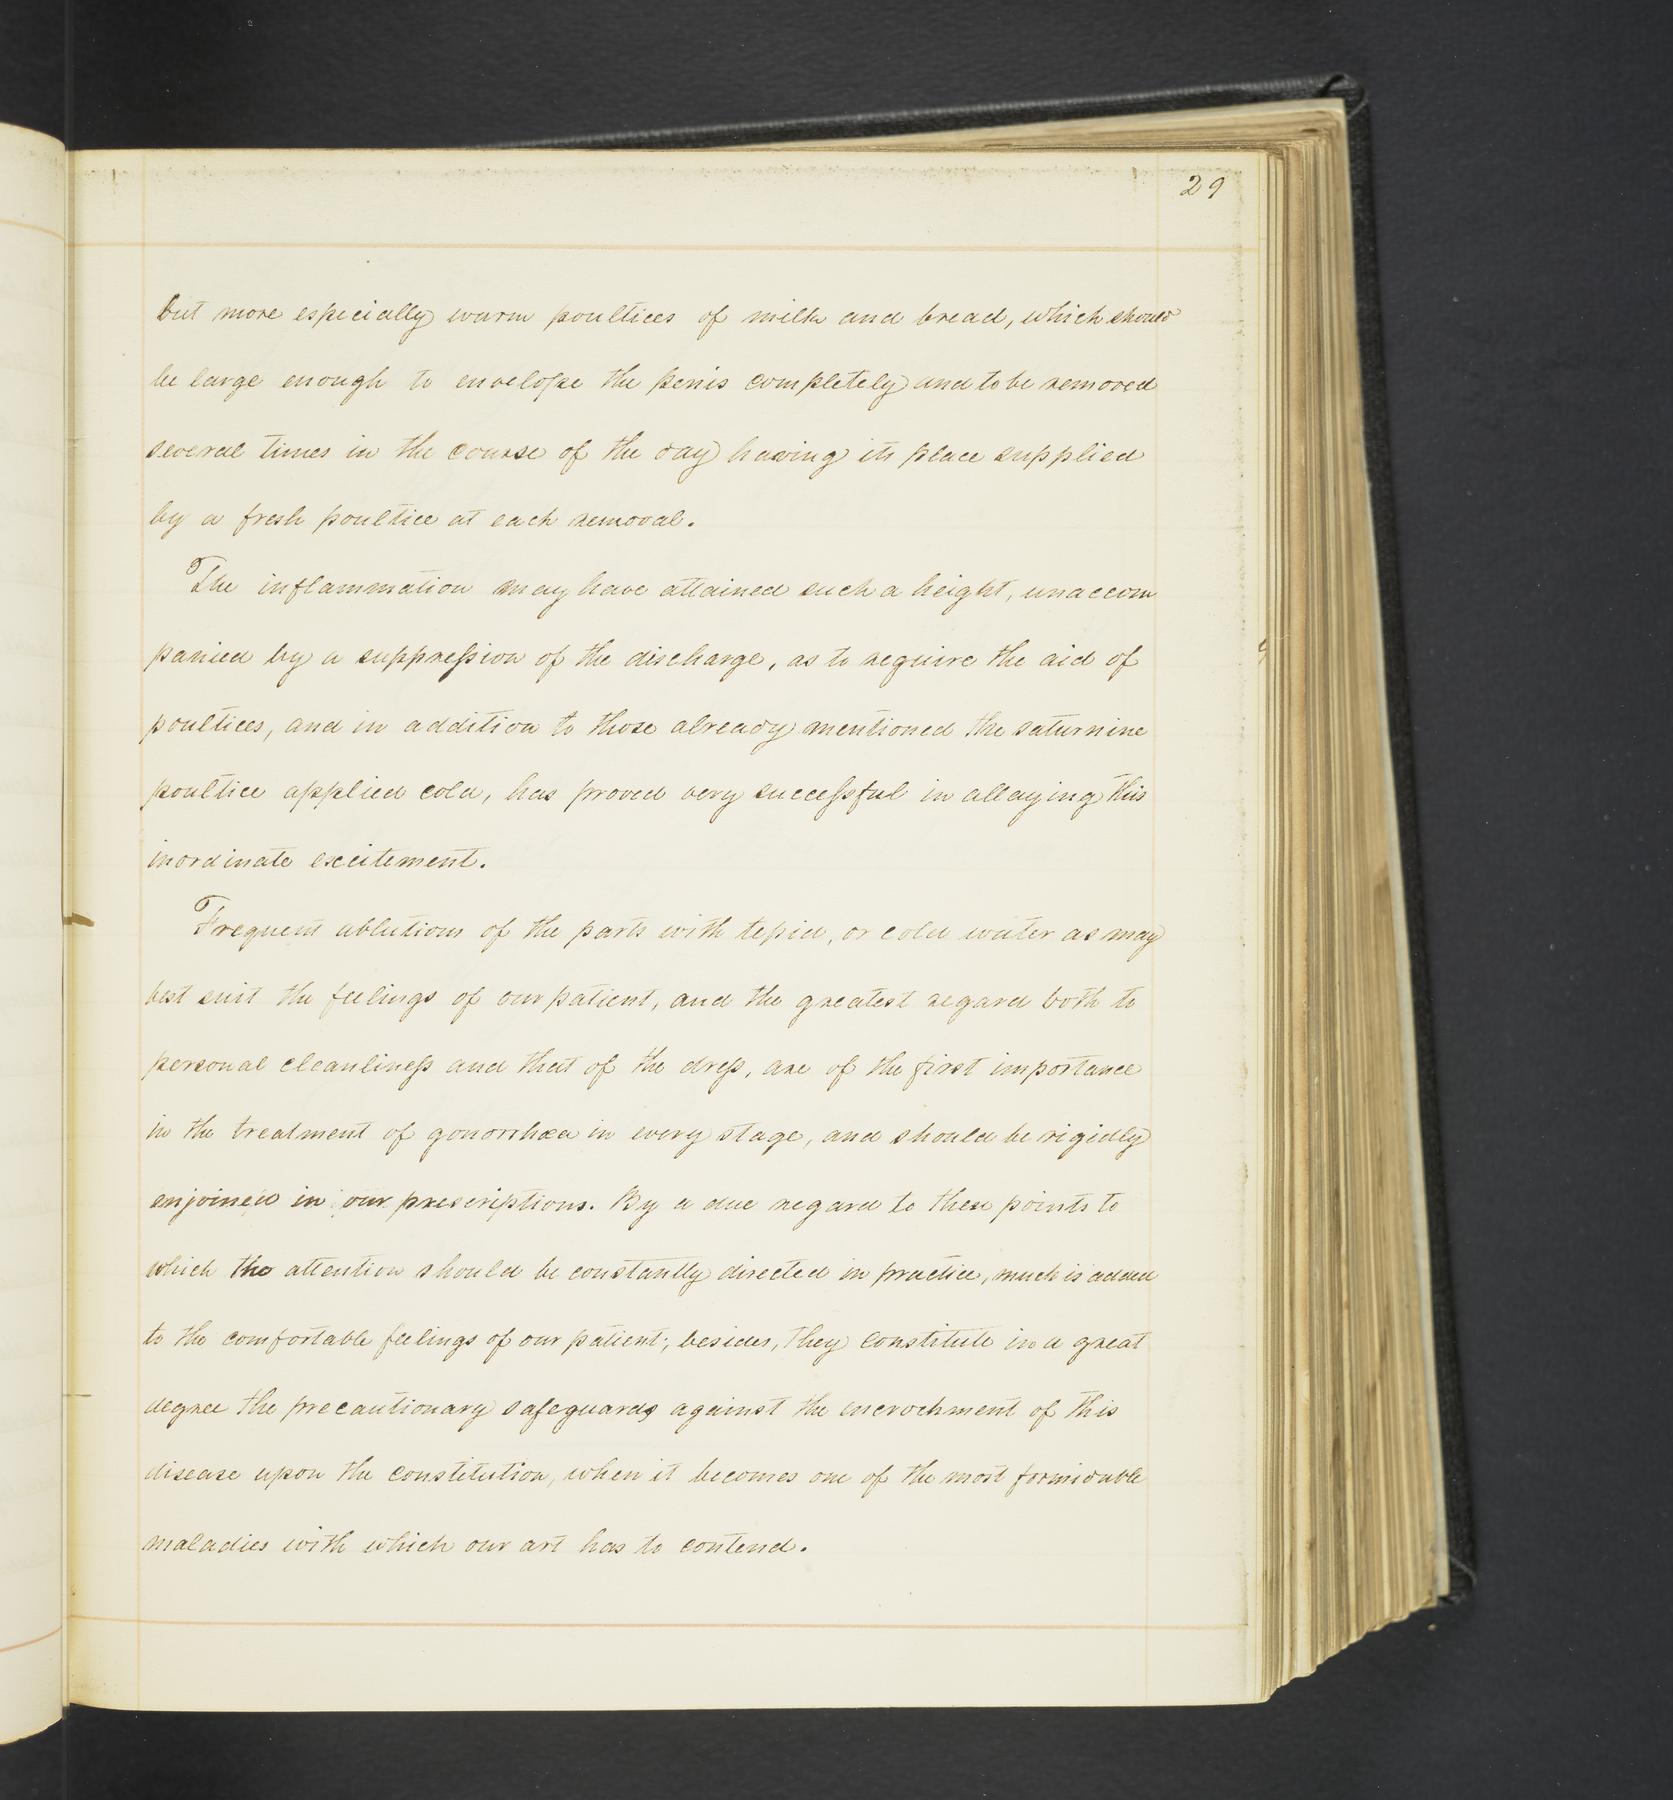 29
but more especially warm poultices of milk and bread, which should
be large enough to envelope the penis completely and to be removed
several times in the course of the day having its place supplied
by a fresh poultice at each removal.
The inflammation may have attained such a height, unaccom
panied by a suppression of the discharge, as to require the aid of
poultices, and in addition to those already mentioned the saturnine
poultice applied cold, has proved very successful in allaying this
inordinate excitement.
Frequent ablutions of the parts with tepid, or cold water as may
best suit the feelings of our patient, and the greatest regard both to
personal cleanliness and that of the dress, are of the first importance
in the treatment of gonorrhœa in every stage, and should be rigidly
enjoined in our prescriptions. By a due regard to these points to
which the attention should be constantly directed in practice, much is added
to the comfortable feelings of our patient; besides, they constitute in a great
degree the precautionary safeguards against the encrochment of this
disease upon the constitution, when it becomes one of the most formidable
maladies with which our art has to contend.